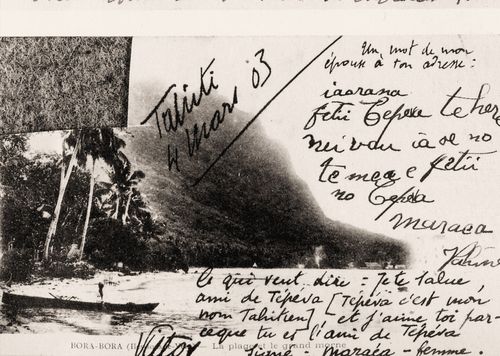 Tahiti
4 Mars 03
Un mot de mon
épouse à ton adresse :
iaorana
fetii Tepeva te here
nei vau ia oe no
te mea e fetii
no Tepéva
maraea
Ce qui veut dire : Je te salue,
ami de Tépéva [Tépéva c'est mon
nom Tahitien] - et j'aime toi par-
ceque tu es l'ami de Tépéva
Signé - Maraca - femme.
BORA-BORA
La plage et le grand morne